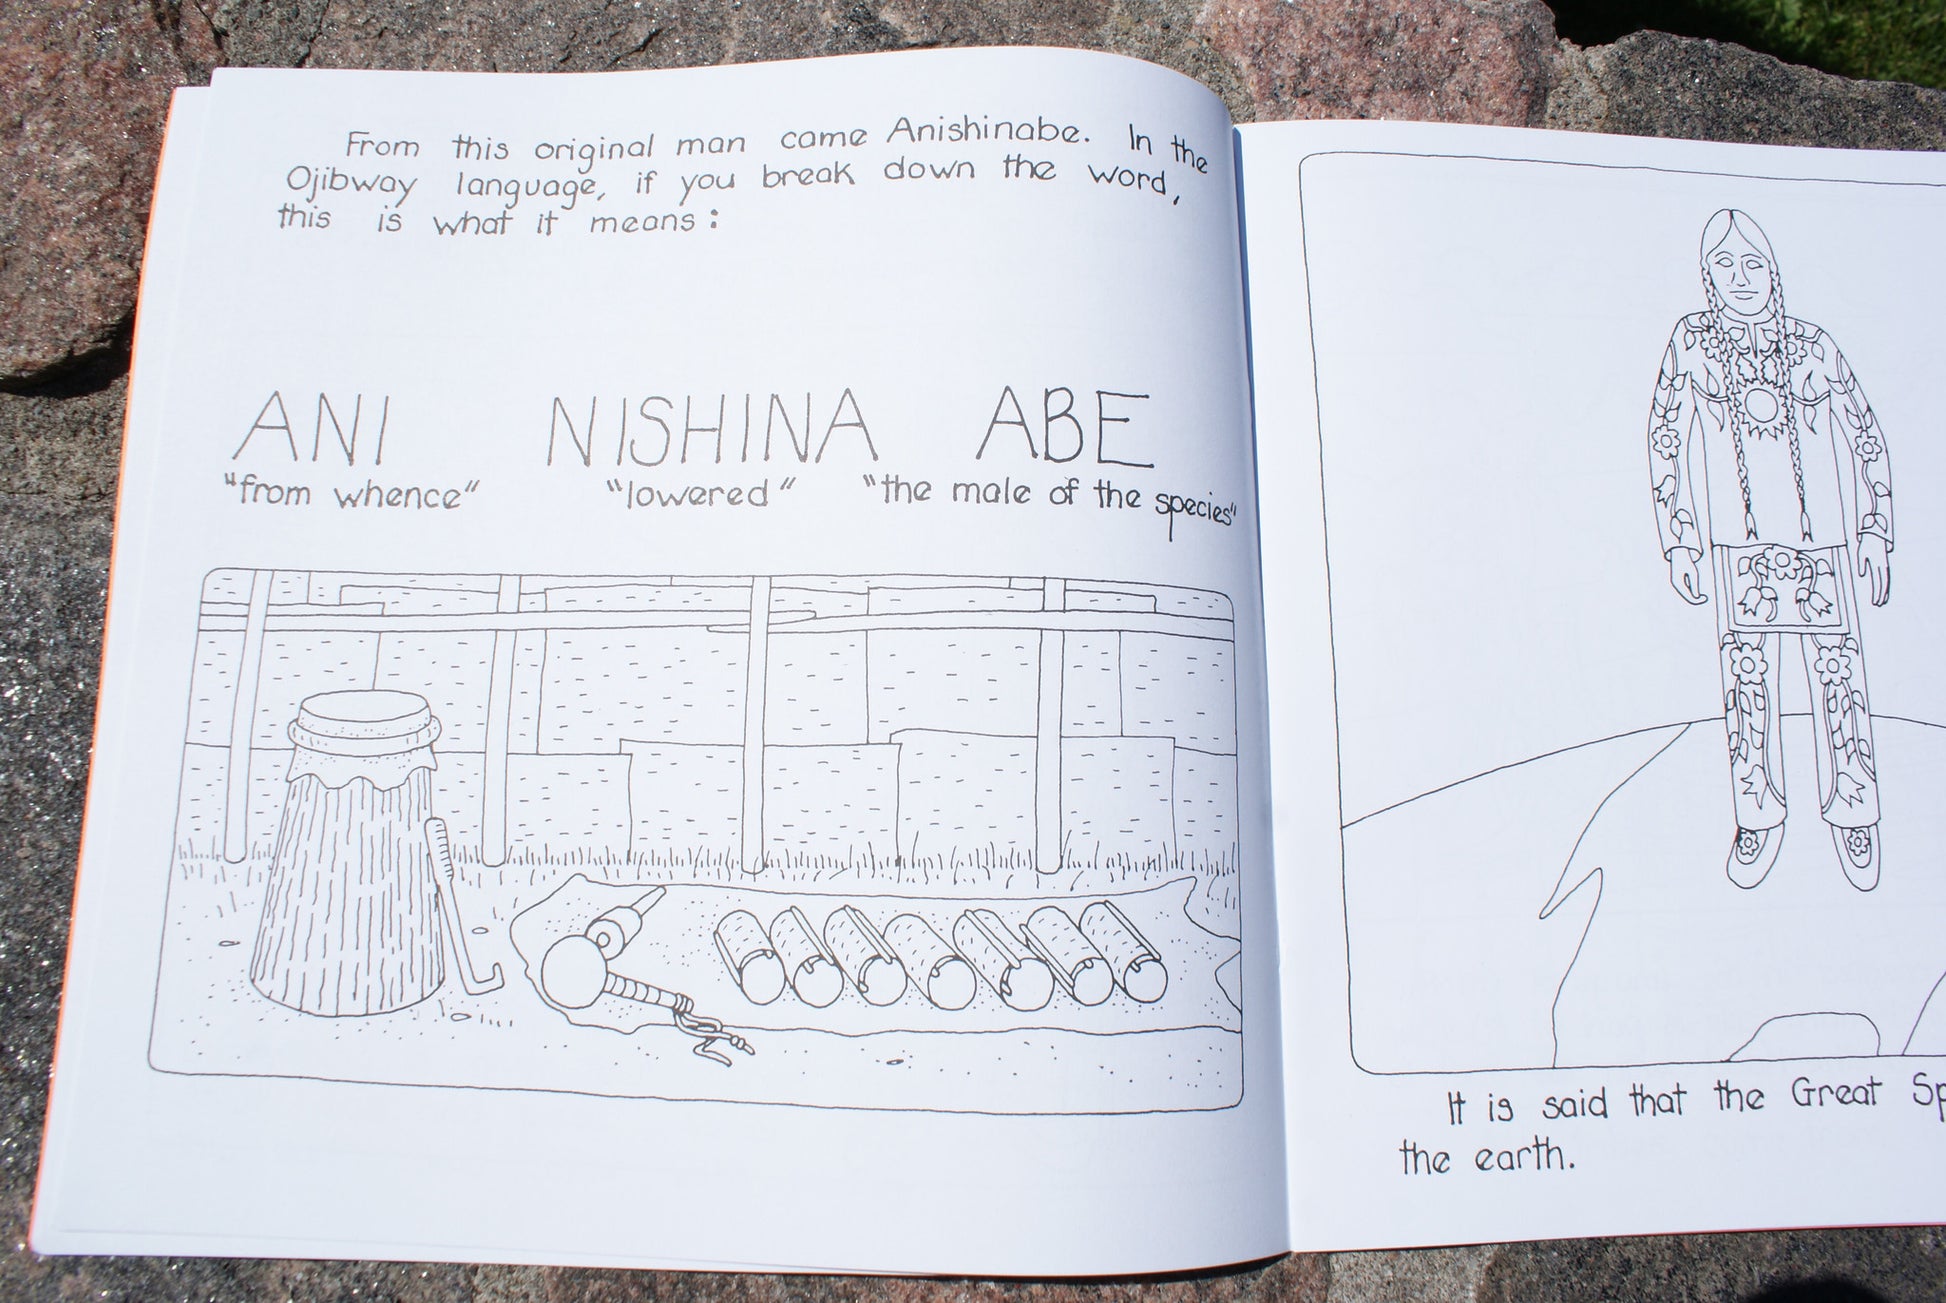 From this original man came Anishinabe. In the
Ojibway language, if you break down the word,
this is what it means:
ANI NISHINA ABE
"from whence" "lowered" "the male of the species"
It is said that the Great
the earth.